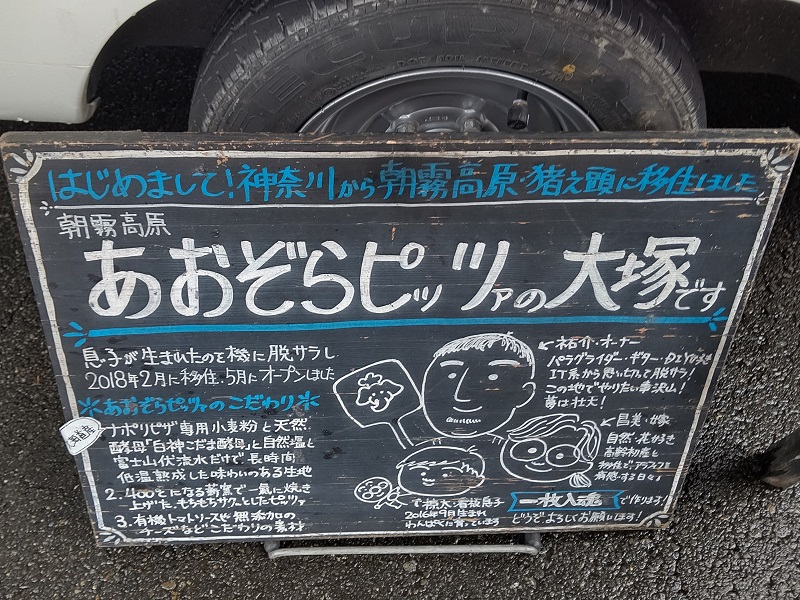 はじめまして!神奈川から朝霧高原・猪之頭に移住しました
朝霧高原
あおぞらピッツァの大塚です
息子が生まれたのを機に脱サラし
2018年2月に移住・5月にオープンしました
※あおぞらピッツァのこだわり※
ナポリピザ専用小麦粉と天然
酵母「白神こだま酵母」と自然塩と
富士山伏流水だけで長時間
低温熟成した味わいのある生地
2. 400℃になる薪窯で一気に焼き
上げた、もちもちサクッとしたピッツァ
3. 有機トマトソースや無添加の
チーズなどこだわりの素材
祐介・オーナー
パラグライダー・ギター・DIY好き
IT系から思い切って脱サラ!
この地でやりたい事沢山!
夢は壮大!
昌美・嫁
自然・花好き
高齢初産と
移住で、アラフォーを
痛感する日々
看板息子
2016年9月生まれ
わんぱくに育っています
一枚入魂で作ります!
どうぞよろしくお願いします!